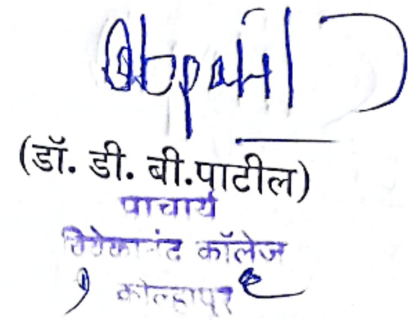 Dbpatil
(डॉ. डी. बी.पाटील)
पाचार्य
विवेकानंद कॉलेज
कोल्हापूर